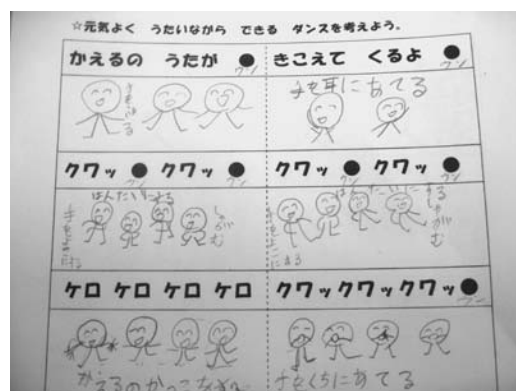 ☆元気よく うたいながら できる ダンスを考えよう。
かえるの うたが ● ウン
きこえて くるよ ● ウン
手を耳にあてる
クワッ ● ウン クワッ ● ウン
クワッ ● ウン クワッ ● ウン
はんたいになる
しゃがむ
はんたいに
しゃがむ
ケロ ケロ ケロ ケロ
クワックワックワッ ● ウン
かえるのかっこ
手をくちにあてる